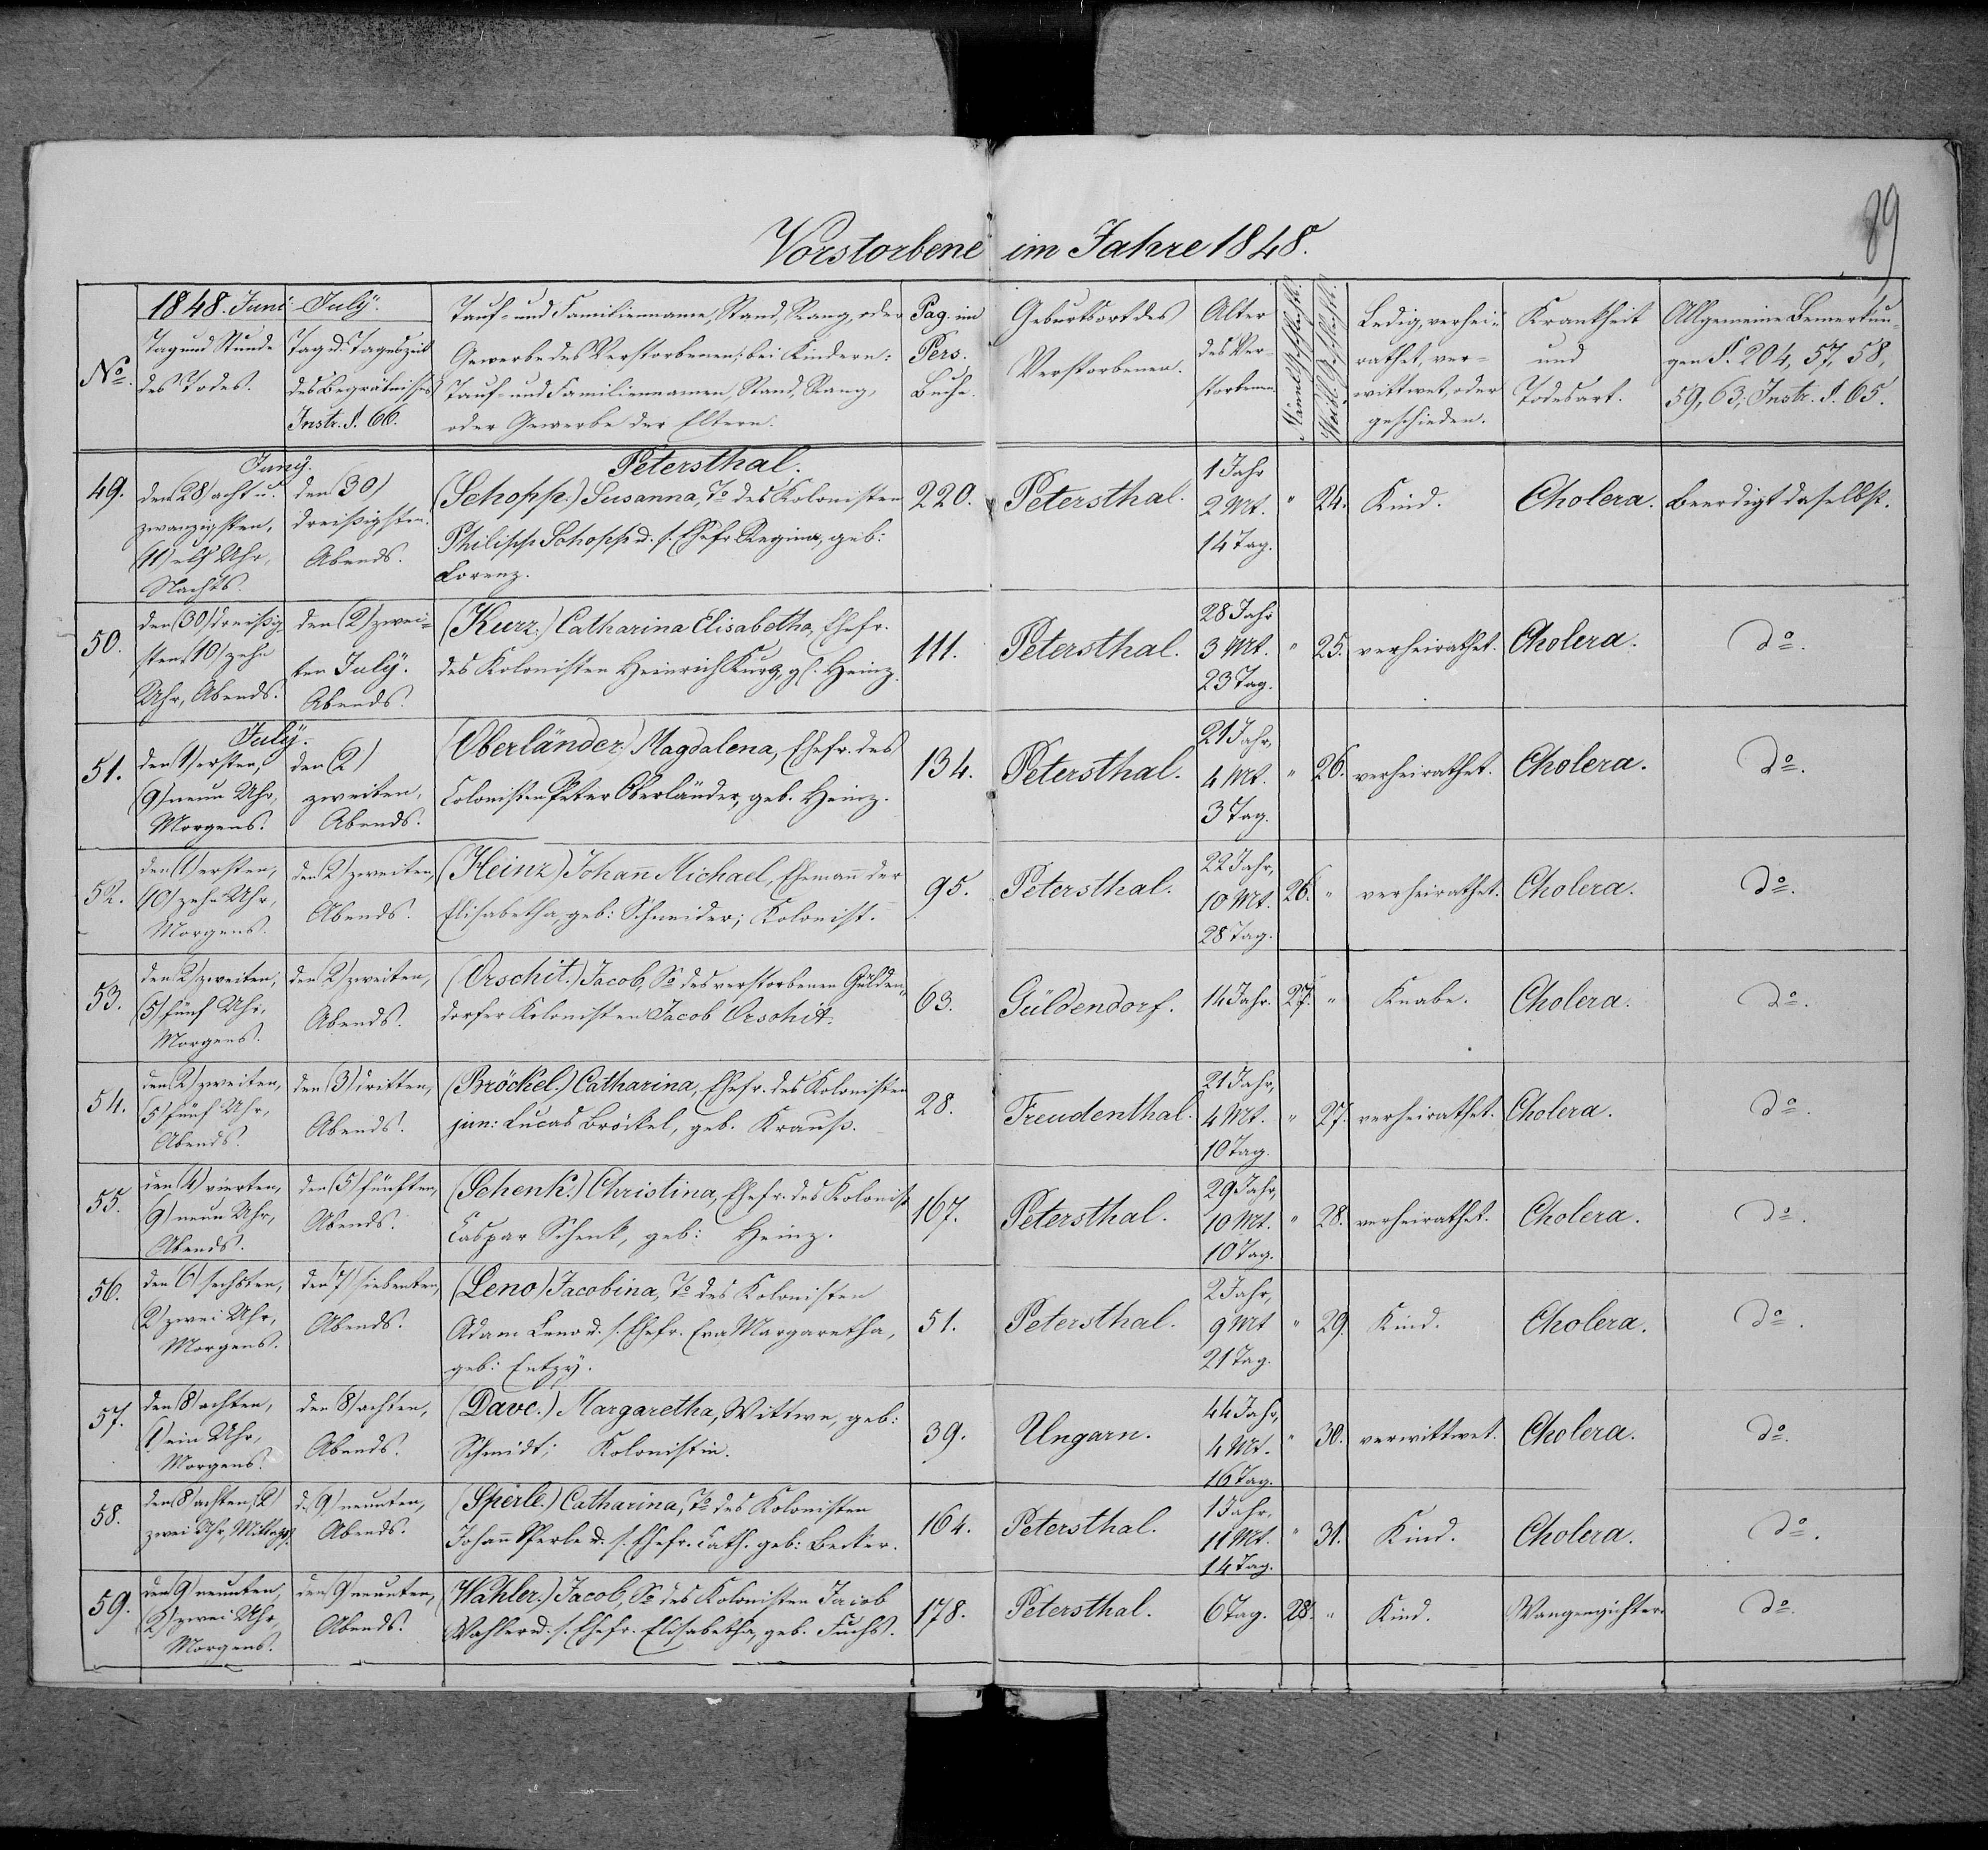 89
Vorstorbene im Jahre 1848.
No.
1848. Juni
Tag und Stunde
des Todes.
July.
Tag u. Tageszeit
des Begräbnisses
Instr. §. 66.
Tauf- und Familienname, Stand, Rang, oder
Gewerbe des Verstorbenen; bei Kindern:
Tauf- und Familiennamen, Stand, Rang,
oder Gewerbe der Eltern.
Pag. im
Pers.
Buche.
Geburtsort des
Verstorbenen.
Alter
des Ver-
storbenen
Männl. Geschlecht.
Weibl. Geschlecht.
Ledig, verhei-
rathet, ver-
wittwet, oder
geschieden.
Krankheit
und
Todesart.
Allgemeine Bemerkun-
gen §. 204, 57, 58,
59, 63, Instr. §. 65.
Juny.
Petersthal.
49.
den (28) acht u.
zwanzigsten,
(11) elf Uhr,
Nachts.
den (30)
dreißigsten.
Abends.
(Schopp.) Susanna, To. des Kolonisten
Philipp Schopp u. s. Ehefr. Regina, geb:
Lorenz.
220.
Petersthal.
1 Jahr
2 Mt.
14 Tag.
" 24.
Kind.
Cholera.
beerdigt daselbst.
50.
den (30) dreißig-
sten (10) zehn
Uhr, Abends.
den (2) zwei-
ten July.
Abends.
(Kurz.) Catharina Elisabetha, Ehefr.
des Kolonisten Heinrich Kurz, geb. Heinz.
111.
Petersthal.
28 Jahr
3 Mt.
23 Tag.
" 25.
verheirathet.
Cholera.
do.
July.
51.
den (1) ersten,
(9) neun Uhr,
Morgens.
den (2)
zweiten,
Abends.
(Oberländer.) Magdalena, Ehefr. des
Colonisten Peter Oberländer, geb. Heinz.
134.
Petersthal.
21 Jahr,
4 Mt.
3 Tag.
" 26.
verheirathet.
Cholera.
do.
52.
den (1) ersten,
(10) zehn Uhr,
Morgens.
den (2) zweiten,
Abends.
(Heinz) Johann Michael, Ehemann der
Elisabetha, geb: Schneider; Kolonist.
95.
Petersthal.
22 Jahr,
10 Mt.
28 Tag.
26. "
verheirathet.
Cholera.
do.
53.
den (2) zweiten,
(5) fünf Uhr,
Morgens.
den (2) zweiten,
Abends.
(Orschit.) Jacob, So. des verstorbenen Gülden-
dorfer Kolonisten Jacob Orschit.
63.
Güldendorf.
14 Jahr.
27. "
Knabe.
Cholera.
do.
54.
den (2) zweiten,
(5) fünf Uhr,
Abends.
den (3) dritten,
Abends.
(Bröckel.) Catharina, Ehefr. des Kolonisten
jun: Lucas Bröckel, geb. Krauß.
28.
Freudenthal.
21 Jahr,
4 Mt.
10 Tag.
" 27.
verheirathet.
Cholera.
do.
55.
den (4) vierten,
(9) neun Uhr,
Abends.
den (5) fünften,
Abends.
(Schenk.) Christina, Ehefr. des Kolonist
Caspar Schenk, geb: Heinz.
167.
Petersthal.
29 Jahr,
10 Mt.
10 Tag.
" 28.
verheirathet.
Cholera.
do.
56.
den (6) sechsten,
(2) zwei Uhr,
Morgens.
den (7) siebenten,
Abends.
(Leno) Jacobina, To. des Kolonisten
Adam Leno u. s. Ehefr. Eva Margaretha,
geb: Entzy.
51.
Petersthal.
2 Jahr,
9 Mt
21 Tag.
" 29.
Kind.
Cholera.
do.
57.
den (8) achten,
(1) ein Uhr,
Morgens.
den (8) achten,
Abends.
(Dave.) Margaretha, Wittwe, geb:
Schmidt; Kolonistin.
39.
Ungarn.
44 Jahr,
4 Mt.
16 Tag.
" 30.
verwittwet.
Cholera.
do.
58.
den (8) achten, (2)
zwei Uhr, Mittags.
d. (9) neunten,
Abends.
(Sperle.) Catharina, To. des Kolonisten
Johann Sperle u. s. Ehefr. Cath. geb: Becker.
164.
Petersthal.
1 Jahr,
11 Mt.
14 Tag.
" 31.
Kind.
Cholera.
do.
59.
den (9) neunten,
(2) zwei Uhr,
Morgens.
den (9) neunten,
Abends.
(Wahler.) Jacob, So. des Kolonisten Jacob
Wahler u. s. Ehefr. Elisabetha, geb. Fuchs.
178.
Petersthal.
6 Tag.
28. "
Kind.
Wangengichter.
do.